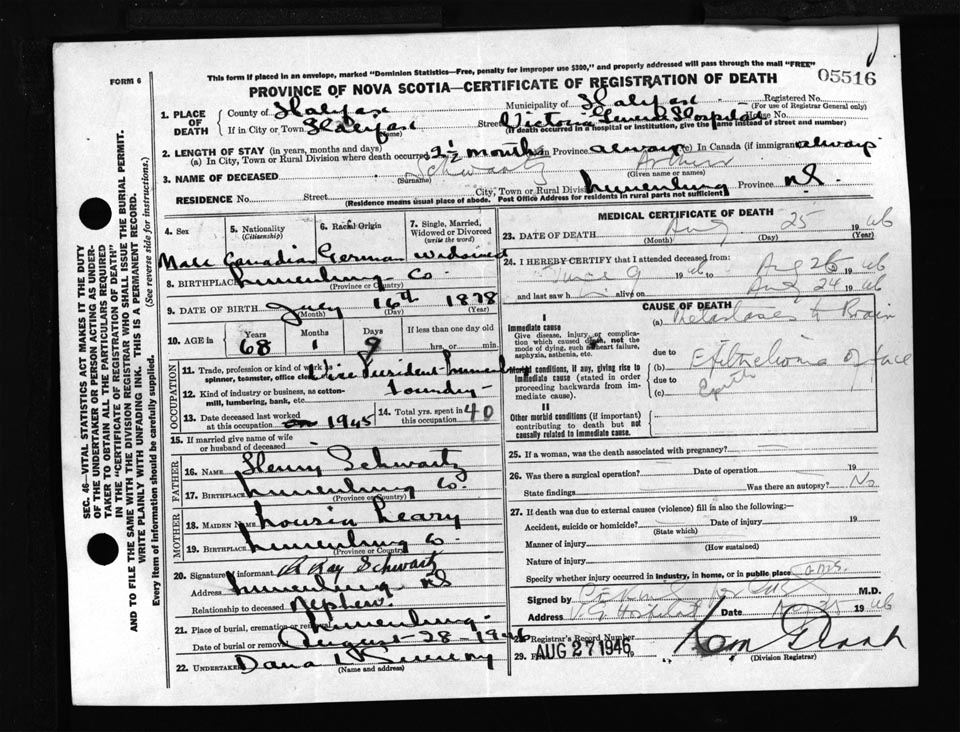 FORM 6
This form if placed in an envelope, marked "Dominion Statistics—Free, penalty for improper use $300," and properly addressed will pass through the mail "FREE"
05516
PROVINCE OF NOVA SCOTIA—CERTIFICATE OF REGISTRATION OF DEATH
1. PLACE OF DEATH
County of Halifax Municipality of Halifax Registered No.
(For use of Registrar General only)
If in City or Town Halifax Street Victoria General Hospital House No.
(Name) (If death occurred in a hospital or institution, give the name instead of street and number)
2. LENGTH OF STAY (in years, months and days)
(a) In City, Town or Rural Division where death occurred 2½ months in Province always (c) In Canada (if immigrant) always
3. NAME OF DECEASED Schwartz Arthur
(Surname) (Given name or names)
RESIDENCE No. Street City, Town or Rural Divis Lunenburg Province N.S.
(Residence means usual place of abode. Post Office Address for residents in rural parts not sufficient)
4. Sex 5. Nationality (Citizenship) 6. Racial Origin 7. Single, Married, Widowed or Divorced (write the word)
Male Canadian German Widowed
8. BIRTHPLACE Lunenburg Co.
(Province or Country)
9. DATE OF BIRTH July 16th 1878
(Month) (Day) (Year)
10. AGE in Years Months Days If less than one day old
68 1 9 hrs. or min.
OCCUPATION
11. Trade, profession or kind of work as spinner, teamster, office cle Vice President Lunenburg
12. Kind of industry or business, as cotton-mill, lumbering, bank, etc. Foundry
13. Date deceased last worked at this occupation 1945 14. Total yrs. spent in this occupation 40
15. If married give name of wife or husband of deceased
FATHER
16. NAME Henry Schwartz
17. BIRTHPLACE Lunenburg Co.
(Province or Country)
MOTHER
18. MAIDEN NAME Lousia Leary
19. BIRTHPLACE Lunenburg Co
(Province or Country)
20. Signature of informant R Ray Schwartz
Address Lunenburg NS
Relationship to deceased Nephew.
21. Place of burial, cremation or removal Lunenburg.
Date of burial or removal August-28-1946
22. UNDERTAKER Dana L Sweeny
(Name and address)
MEDICAL CERTIFICATE OF DEATH
23. DATE OF DEATH Aug 25 1946
(Month) (Day) (Year)
24. I HEREBY CERTIFY that I attended deceased from:
June 9 1946 to Aug 25 1946
and last saw h alive on Aug 24 1946
CAUSE OF DEATH
I
Immediate cause
Give disease, injury or complication which caused death, not the mode of dying, such as heart failure, asphyxia, asthenia, etc.
(a) Metastases to Brain
due to
Morbid conditions, if any, giving rise to immediate cause (stated in order proceeding backwards from immediate cause).
(b) Epithelioma of face
due to
(c) Epith
II
Other morbid conditions (if important) contributing to death but not causally related to immediate cause.
25. If a woman, was the death associated with pregnancy?
26. Was there a surgical operation? Date of operation 19
State findings Was there an autopsy? No
27. If death was due to external causes (violence) fill in also the following:—
Accident, suicide or homicide? Date of injury 19
(State which)
Manner of injury
(How sustained)
Nature of injury
Specify whether injury occurred in industry, in home, or in public place
Signed by M.D.
Address V.G. Hospital Date 25 1946
28. Registrar's Record Number
29. AUG 27 1946
(Division Registrar)
SEC. 46—VITAL STATISTICS ACT MAKES IT THE DUTY OF THE UNDERTAKER OR PERSON ACTING AS UNDERTAKER TO OBTAIN ALL THE PARTICULARS REQUIRED IN THE "CERTIFICATE OF REGISTRATION OF DEATH" AND TO FILE THE SAME WITH THE DIVISION REGISTRAR WHO SHALL ISSUE THE BURIAL PERMIT.
WRITE PLAINLY WITH UNFADING INK. THIS IS A PERMANENT RECORD.
Every item of information should be carefully supplied. (See reverse side for instructions.)